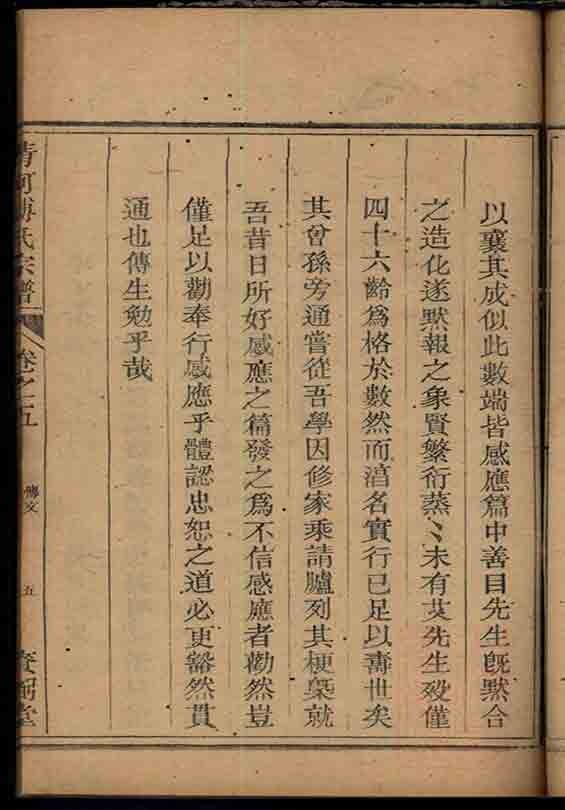 以襄其成似此數端皆感應篇中善目先生旣默合
之造化遂默報之象賢繁衍蒸〻未有艾先生歿僅
四十六齡爲格於數然而淯名實行已足以壽世矣
其曾孫旁通嘗從吾學因修家乘請臚列其梗槩就
吾昔日所好感應之篇發之爲不信感應者勸然豈
僅足以勸奉行感應乎體認忠恕之道必更豁然貫
通也傳生勉乎哉
清河傅氏宗譜
卷之五
傳文
五
堂